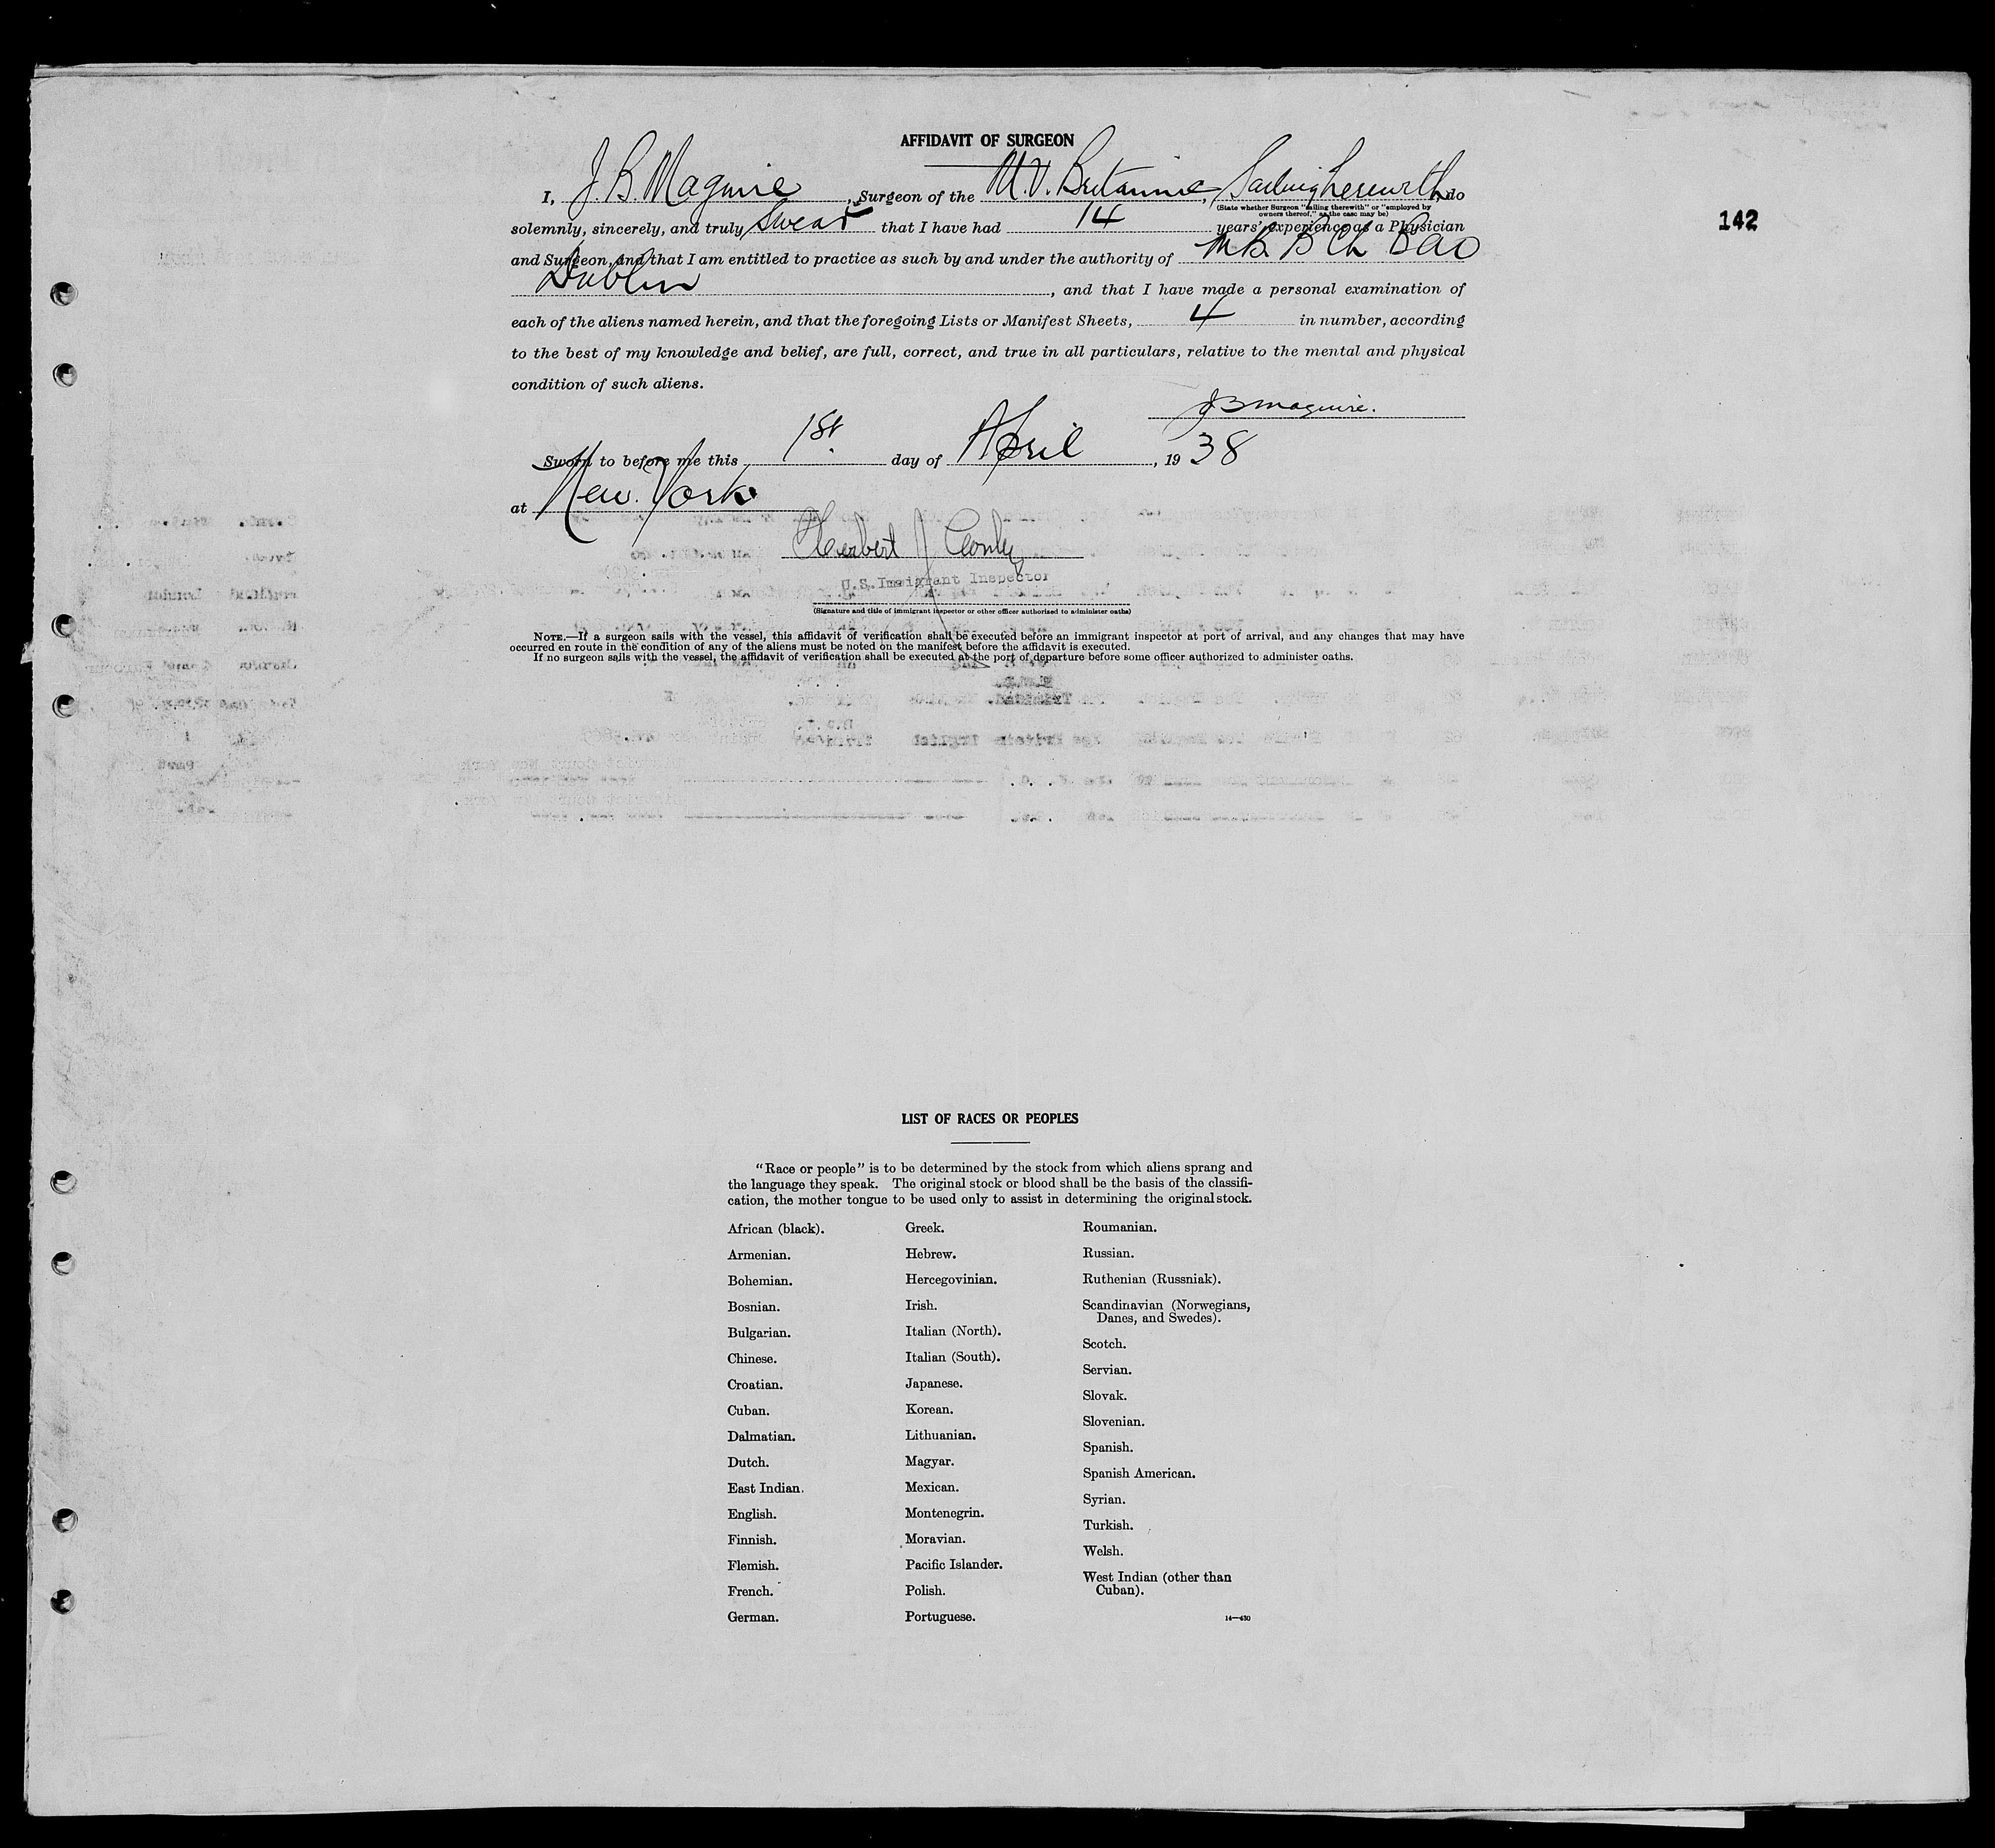 AFFIDAVIT OF SURGEON
I, J. B. Maguire, Surgeon of the M.V. Britannic, Sailing herewith, do
(State whether Surgeon "sailing therewith" or "employed by
owners thereof," as the case may be)
142
solemnly, sincerely, and truly swear that I have had 14 years' experience as a Physician
and Surgeon, and that I am entitled to practice as such by and under the authority of MB B Ch BAO
Dublin, and that I have made a personal examination of
each of the aliens named herein, and that the foregoing Lists or Manifest Sheets, 4 in number, according
to the best of my knowledge and belief, are full, correct, and true in all particulars, relative to the mental and physical
condition of such aliens.
J B Maguire.
Sworn to before me this 1st. day of April, 1938
at New York
Herbert J
U.S. Immigrant Inspector
(Signature and title of immigrant inspector or other officer authorized to administer oaths)
NOTE.—If a surgeon sails with the vessel, this affidavit of verification shall be executed before an immigrant inspector at port of arrival, and any changes that may have
occurred en route in the condition of any of the aliens must be noted on the manifest before the affidavit is executed.
If no surgeon sails with the vessel, the affidavit of verification shall be executed at the port of departure before some officer authorized to administer oaths.
LIST OF RACES OR PEOPLES
"Race or people" is to be determined by the stock from which aliens sprang and
the language they speak. The original stock or blood shall be the basis of the classifi-
cation, the mother tongue to be used only to assist in determining the original stock.
African (black).
Armenian.
Bohemian.
Bosnian.
Bulgarian.
Chinese.
Croatian.
Cuban.
Dalmatian.
Dutch.
East Indian.
English.
Finnish.
Flemish.
French.
German.
Greek.
Hebrew.
Hercegovinian.
Irish.
Italian (North).
Italian (South).
Japanese.
Korean.
Lithuanian.
Magyar.
Mexican.
Montenegrin.
Moravian.
Pacific Islander.
Polish.
Portuguese.
Roumanian.
Russian.
Ruthenian (Russniak).
Scandinavian (Norwegians,
Danes, and Swedes).
Scotch.
Servian.
Slovak.
Slovenian.
Spanish.
Spanish American.
Syrian.
Turkish.
Welsh.
West Indian (other than
Cuban).
14—430